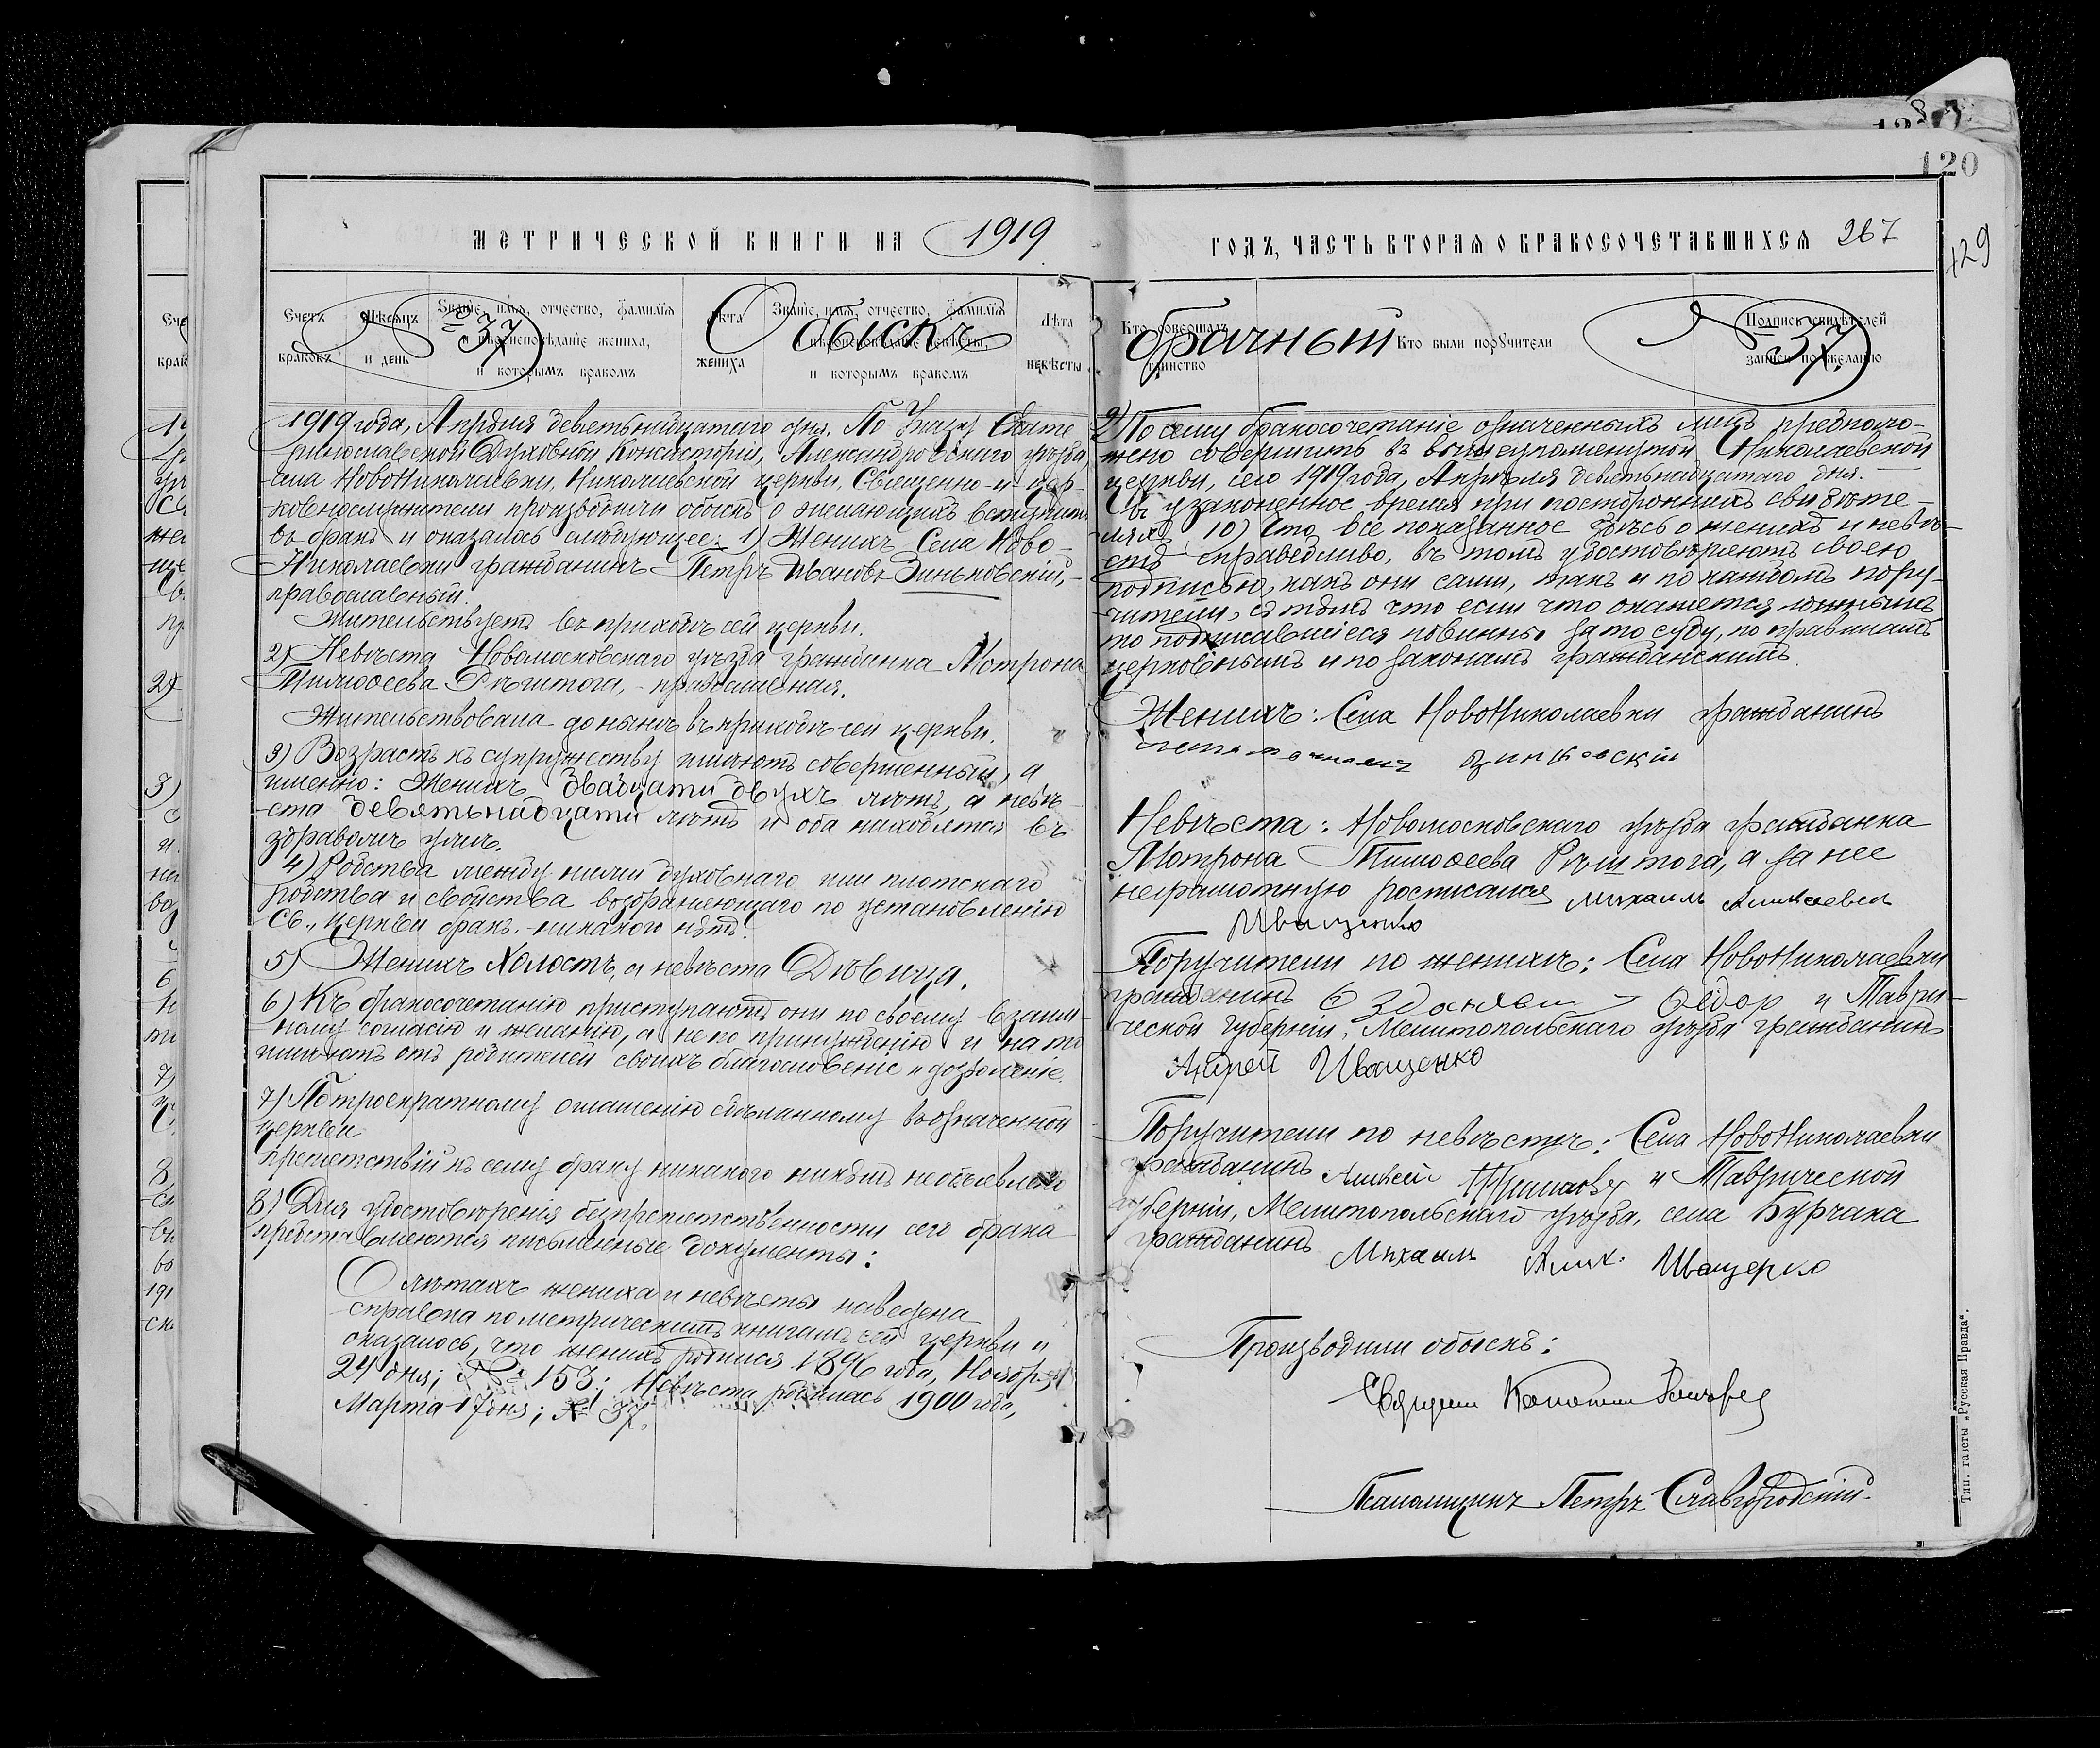 120
129
МЕТРИЧЕСКОЙ КНИГИ НА 1919
Счетъ браковъ
Мѣсяцъ и день
Званіе, имя, отчество, фамилія и вѣроисповѣданіе жениха, и которымъ бракомъ
Лѣта жениха
Званіе, имя, отчество, фамилія и вѣроисповѣданіе невѣсты, и которымъ бракомъ
Лѣта невѣсты
№ 37 Обыскъ
1919 года, Апрѣля девятьнадцатого дня. По Указу Екате-
ринославской Духовной Консисторіи, Александровскаго уѣзда,
села НовоНиколаевки, Николаевской церкви, Священно- и цер-
ковнослужители производили обыскъ о желающихъ вступить
въ бракъ и оказалось слѣдующее: 1) Женихъ Села Ново-
Николаевки гражданинъ Петръ Ивановъ Зиньковскій, -
православный.
Жительствуетъ въ приходѣ сей церкви.
2) Невѣста Новомосковскаго уѣзда гражданка Мотрона
Тимоѳеева Рѣштога, - православная.
Жительствовала до нынѣ въ приходѣ сей церкви.
3) Возрастъ къ супружеству имѣютъ совершенный, а
именно: Женихъ двадцати двухъ лѣтъ, а невѣ-
ста девятьнадцати лѣтъ и оба находятся въ
здравомъ умѣ.
4) Родства между ними духовнаго или плотскаго
родства и свойства возбраняющаго по установленію
Св., церкви бракъ - никакого нѣтъ.
5) Женихъ Холостъ, а невѣста Дѣвица.
6) Къ бракосочетанію приступаютъ они по своему взаим-
ному согласію и желанію, а не по принужденію и на то
имѣютъ отъ родителей своихъ благословеніе и дозволеніе.
7) По троекратному оглашенію сдѣланному въ означенной
церкви
препятствій къ сему браку никакого никѣмъ не объявлено
8) Для удостовѣренія безпрепятственности сего брака
представляются письменные документы:
О лѣтахъ жениха и невѣсты наведена
справка по метрическимъ книгамъ сей церкви и
оказалось, что женихъ родился 1896 года, Ноября
24 дня; № 153; Невѣста родилась 1900 года,
Марта 17 дня; № 37.
ГОДЪ, ЧАСТЬ ВТОРАЯ О БРАКОСОЧЕТАВШИХСЯ 267
Кто совершалъ таинство
Кто были поручители
Подпись свидѣтелей записи по желанію
брачный № 37
9) По сему бракосочетаніе означенныхъ лицъ предполо-
жено совершить въ вышеупомянутой Николаевской
церкви, сего 1919 года, Апрѣля девятьнадцатого дня. -
въ узаконенное время при постороннихъ свидѣте-
ляхъ 10) Что все показанное здѣсь о женихѣ и невѣ-
стѣ справедливо, въ томъ удостовѣряютъ своею
подписью, какъ они сами, такъ и по каждомъ пору-
чители, съ тѣмъ что если что окажется ложнымъ
то подписавшіеся повинны за то суду, по правиламъ
церковнымъ и по законамъ гражданскимъ.
Женихъ: Села НовоНиколаевки гражданинъ
Зинковскій
Невѣста: Новомосковскаго уѣзда гражданка
Мотрона Тимоѳеева Рѣштога, а за нее
неграмотную росписался Михаилъ Алексеевъ
Иващенко
Поручители по женихѣ: Села НовоНиколаевки
гражданинъ Федор и Таври-
ческой Губерніи, Мелитопольскаго уѣзда гражданинъ
Андрей Иващенко
Поручители по невѣстѣ: Села НовоНиколаевки
гражданинъ Алексей и Таврической
губерніи, Мелитопольскаго уѣзда, села Бурчака
гражданинъ Михаилъ Алек. Иващенко
Производили обыскъ:
Псаломщикъ Петръ Славгородскій.
Тип. газеты „Русская Правда".